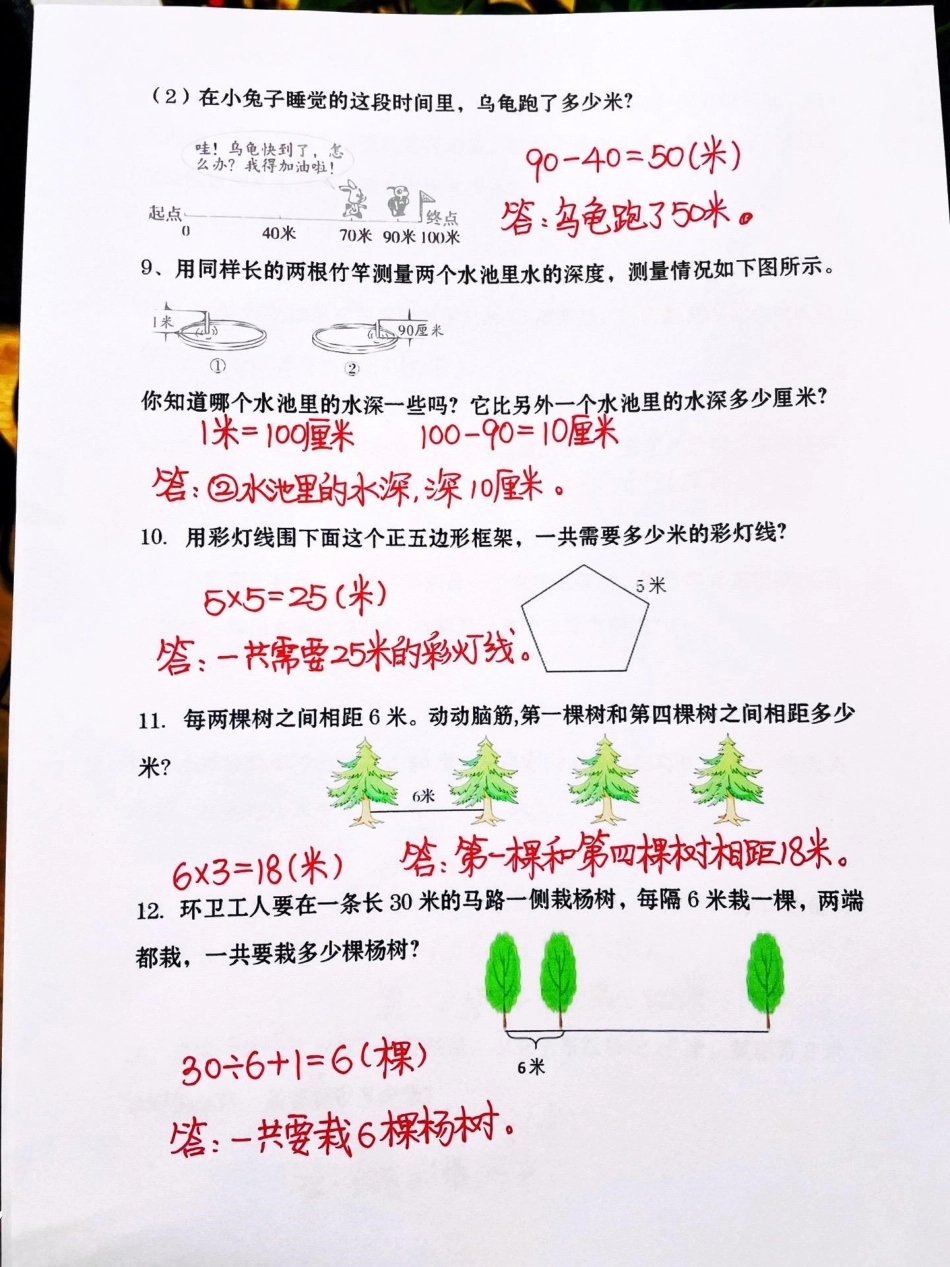 （2）在小兔子睡觉的这段时间里，乌龟跑了多少米？
哇！乌龟快到了，怎
么办？我得加油啦！
90-40=50(米)
答：乌龟跑了50米。
起点
终点
0 40米 70米 90米 100米
9、用同样长的两根竹竿测量两个水池里水的深度，测量情况如下图所示。
1米
90厘米
① ②
你知道哪个水池里的水深一些吗？它比另外一个水池里的水深多少厘米？
1米=100厘米 100-90=10厘米
答：②水池里的水深,深10厘米。
10. 用彩灯线围下面这个正五边形框架，一共需要多少米的彩灯线？
5米
5×5=25(米)
答：一共需要25米的彩灯线。
11. 每两棵树之间相距 6 米。动动脑筋,第一棵树和第四棵树之间相距多少
米？
6米
6×3=18(米) 答：第一棵和第四棵树相距18米。
12. 环卫工人要在一条长 30 米的马路一侧栽杨树，每隔 6 米栽一棵，两端
都栽，一共要栽多少棵杨树？
6米
30÷6+1=6(棵)
答：一共要栽6棵杨树。